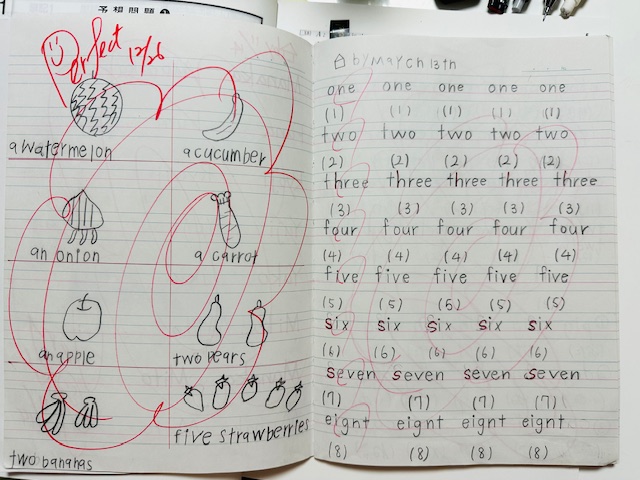 予想問題 1
Perfect 12/26
a watermelon a cucumber
an onion a carrot
an apple two pears
five strawberries
two bananas
by March 13th
one one one one one
(1) (1) (1) (1) (1)
two two two two two
(2) (2) (2) (2) (2)
three three three three three
(3) (3) (3) (3) (3)
four four four four four
(4) (4) (4) (4) (4)
five five five five five
(5) (5) (5) (5) (5)
six six six six six
(6) (6) (6) (6) (6)
seven seven seven seven
(7) (7) (7) (7)
eignt eignt eignt eignt
(8) (8) (8) (8)